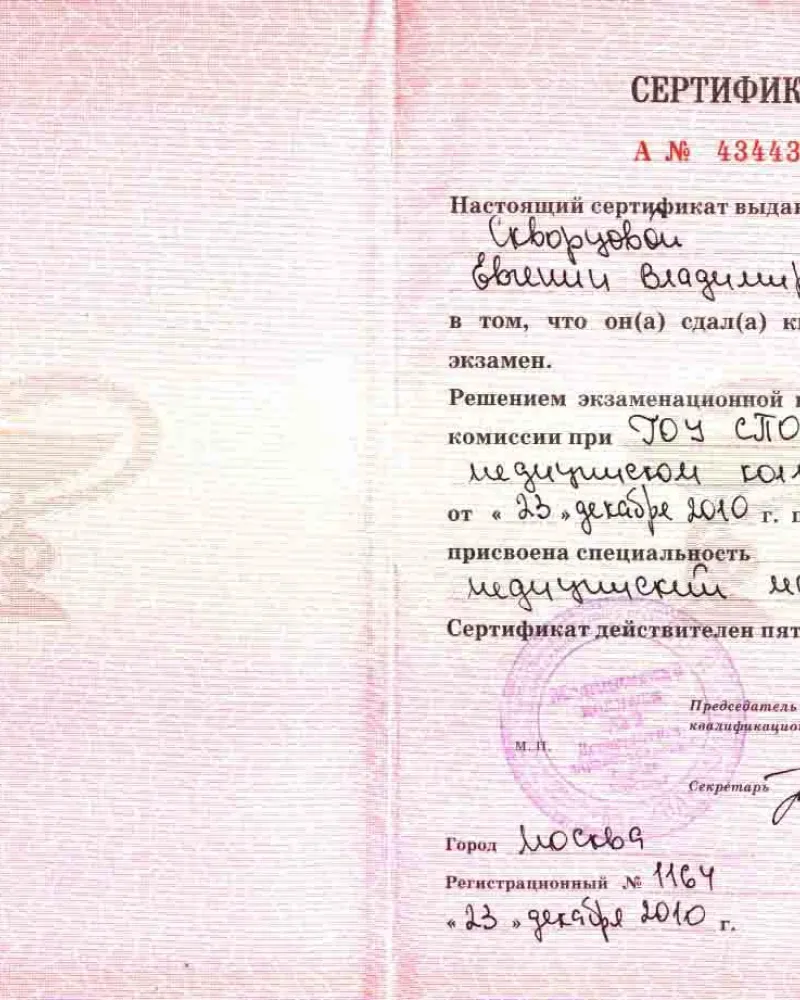 СЕРТИФИК
А № 43443
Настоящий сертификат выдан
Скворцовой
Евгении Владимир
в том, что он(а) сдал(а) к
экзамен.
Решением экзаменационной
комиссии при ГОУ СПО
медицинском кол
от « 23 » декабря 2010 г. п
присвоена специальность
медицинский м
Сертификат действителен пят
Медицинский
колледж
№ 2
Председатель
квалификацион
М. П.
Секретарь
Город Москва
Регистрационный № 1164
« 23 » декабря 2010 г.